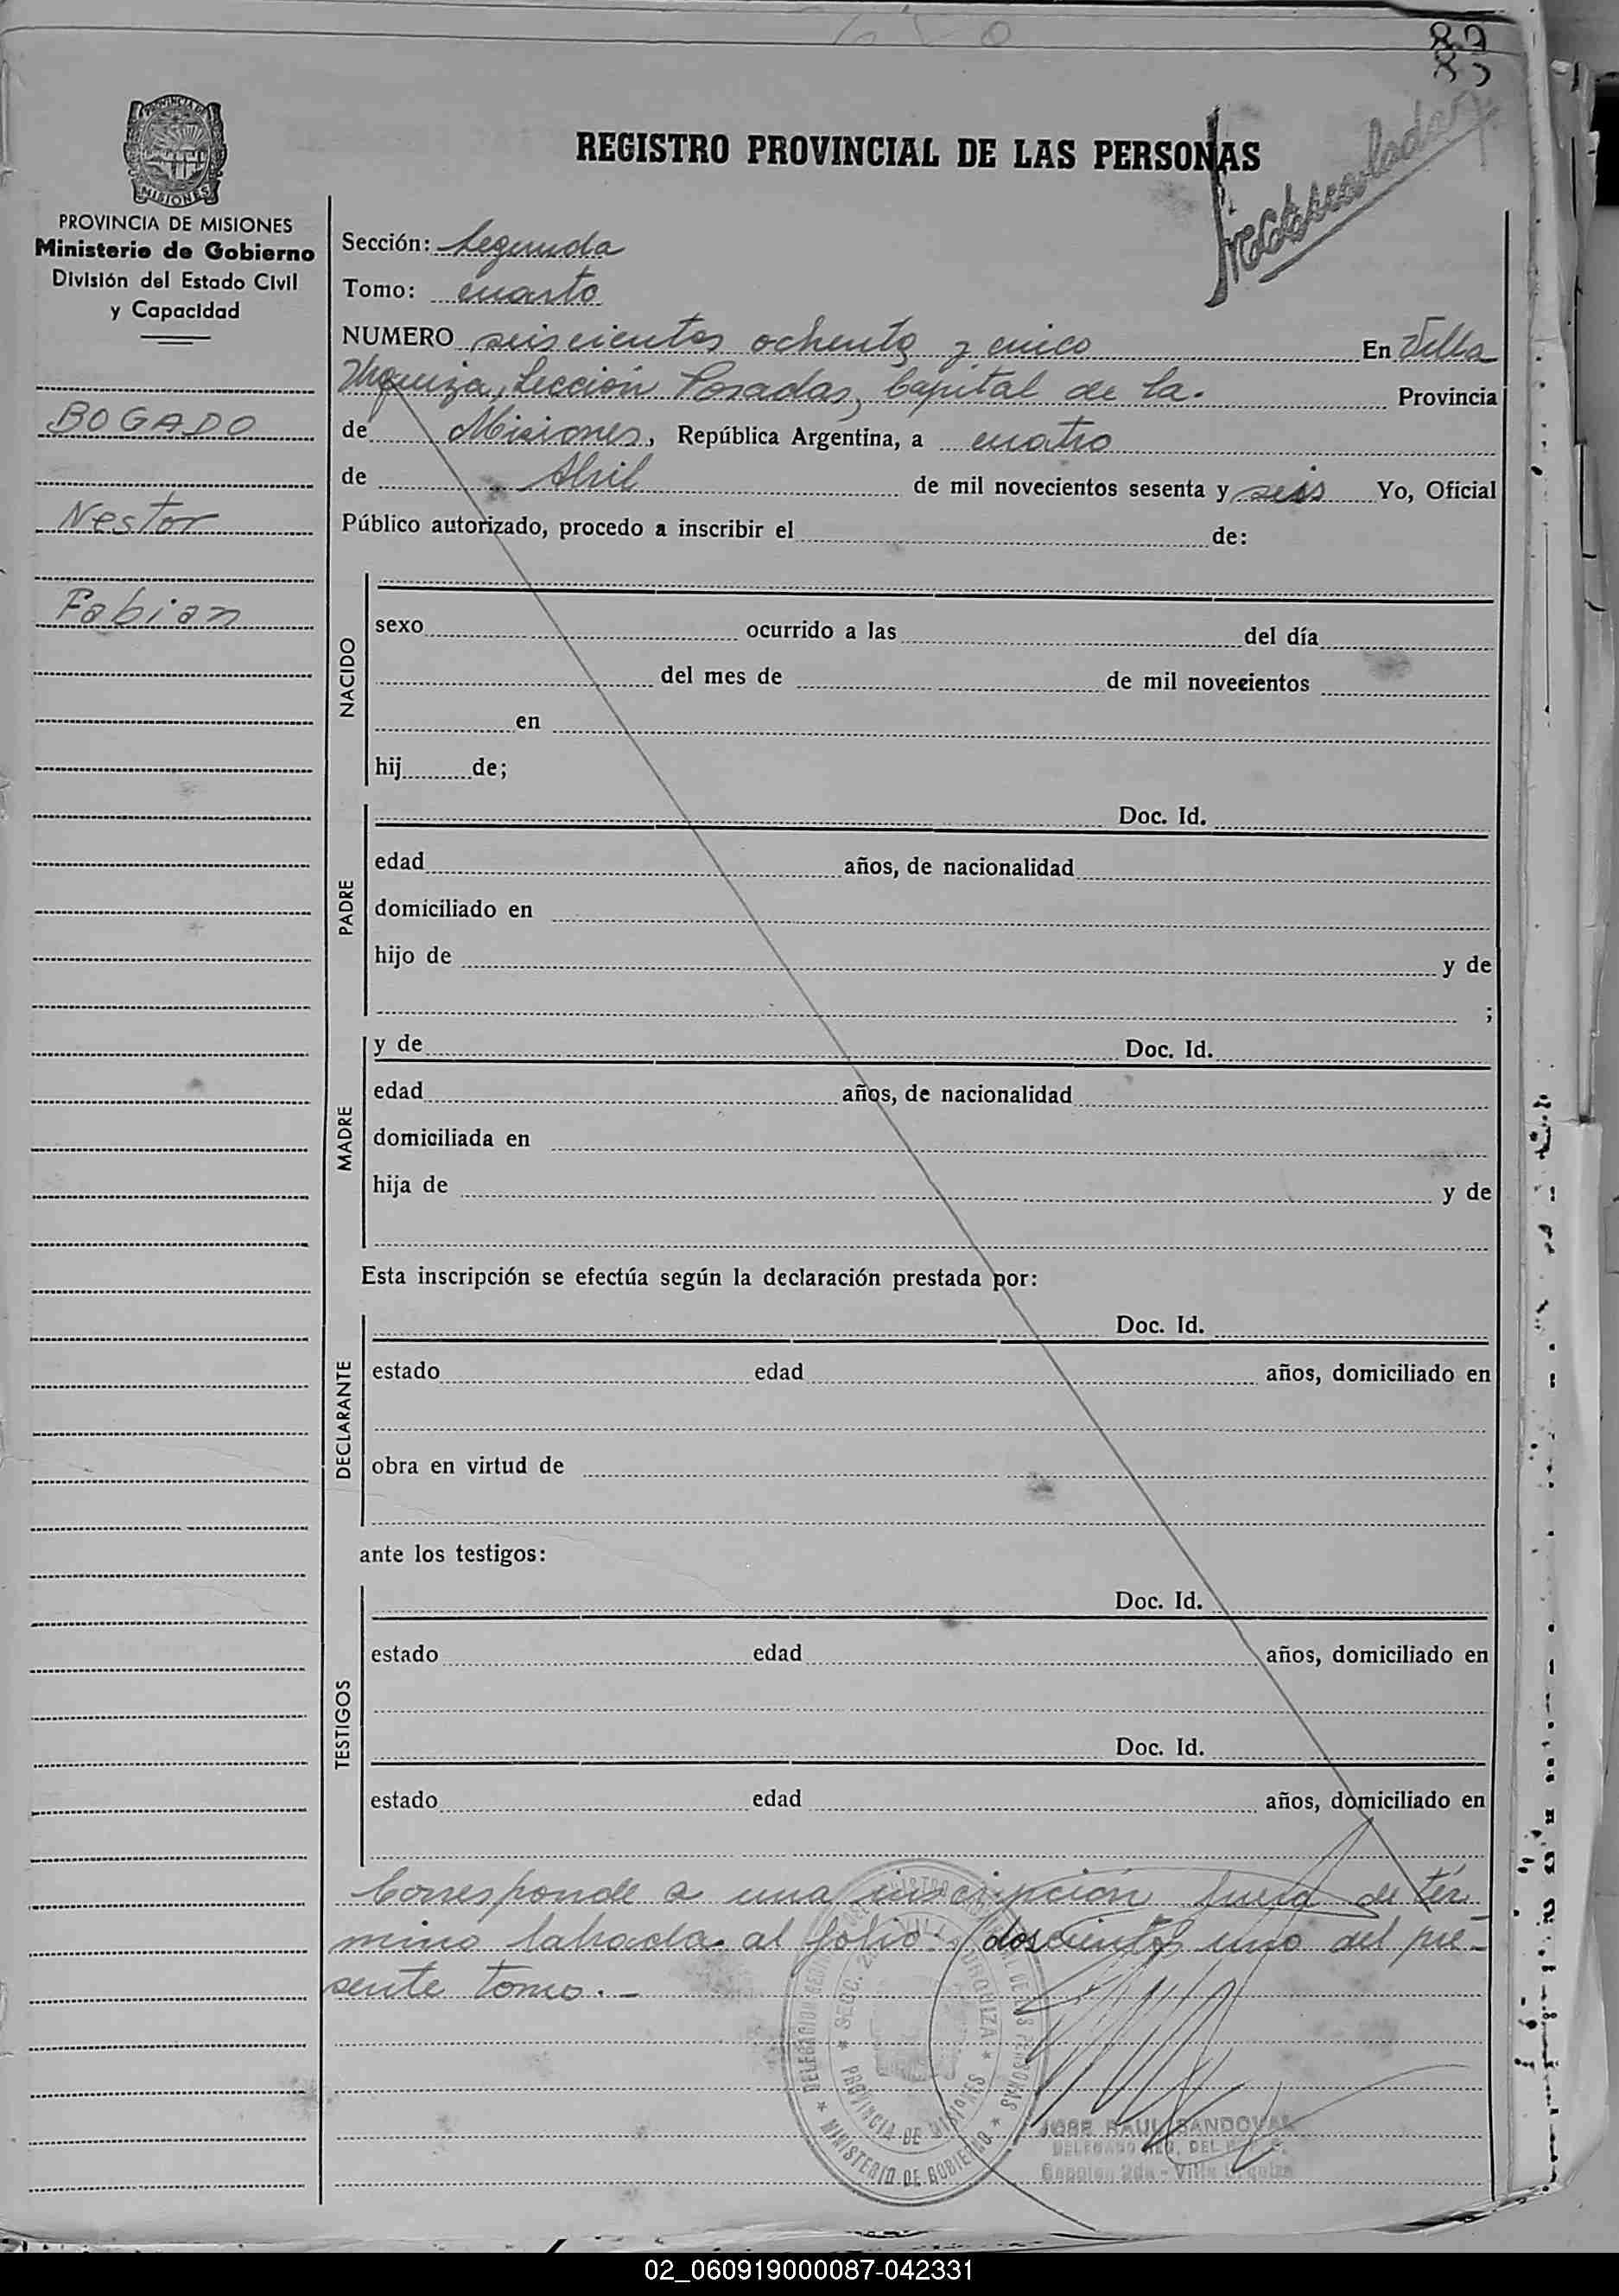 89
REGISTRO PROVINCIAL DE LAS PERSONAS
PROVINCIA DE MISIONES
Ministerio de Gobierno
División del Estado Civil
y Capacidad
BOGADO
Nestor
Fabian
Sección: Segunda
Tomo: cuarto
NUMERO seiscientos ochenta y cinco En Villa
Urquiza, Sección Posadas, Capital de la. Provincia
de Misiones, República Argentina, a cuatro
de Abril de mil novecientos sesenta y seis Yo, Oficial
Público autorizado, procedo a inscribir el de:
NACIDO
sexo ocurrido a las del día
del mes de de mil novecientos
en
hij de;
PADRE
Doc. Id.
edad años, de nacionalidad
domiciliado en
hijo de y de
;
MADRE
y de Doc. Id.
edad años, de nacionalidad
domiciliada en
hija de y de
Esta inscripción se efectúa según la declaración prestada por:
DECLARANTE
Doc. Id.
estado edad años, domiciliado en
obra en virtud de
ante los testigos:
TESTIGOS
Doc. Id.
estado edad años, domiciliado en
Doc. Id.
estado edad años, domiciliado en
Corresponde a una inscripción fuera de tér
mino labrada al folio doscientos uno del pre-
sente tomo.-
SECC. 2da VILLA URQUIZA
PROVINCIA DE MISIONES
MINISTERIO DE GOBIERNO
JOSE RAUL SANDOVAL
DELEGADO REG. DEL R. P. P.
Seccion 2da - Villa Urquiza
02_060919000087-042331